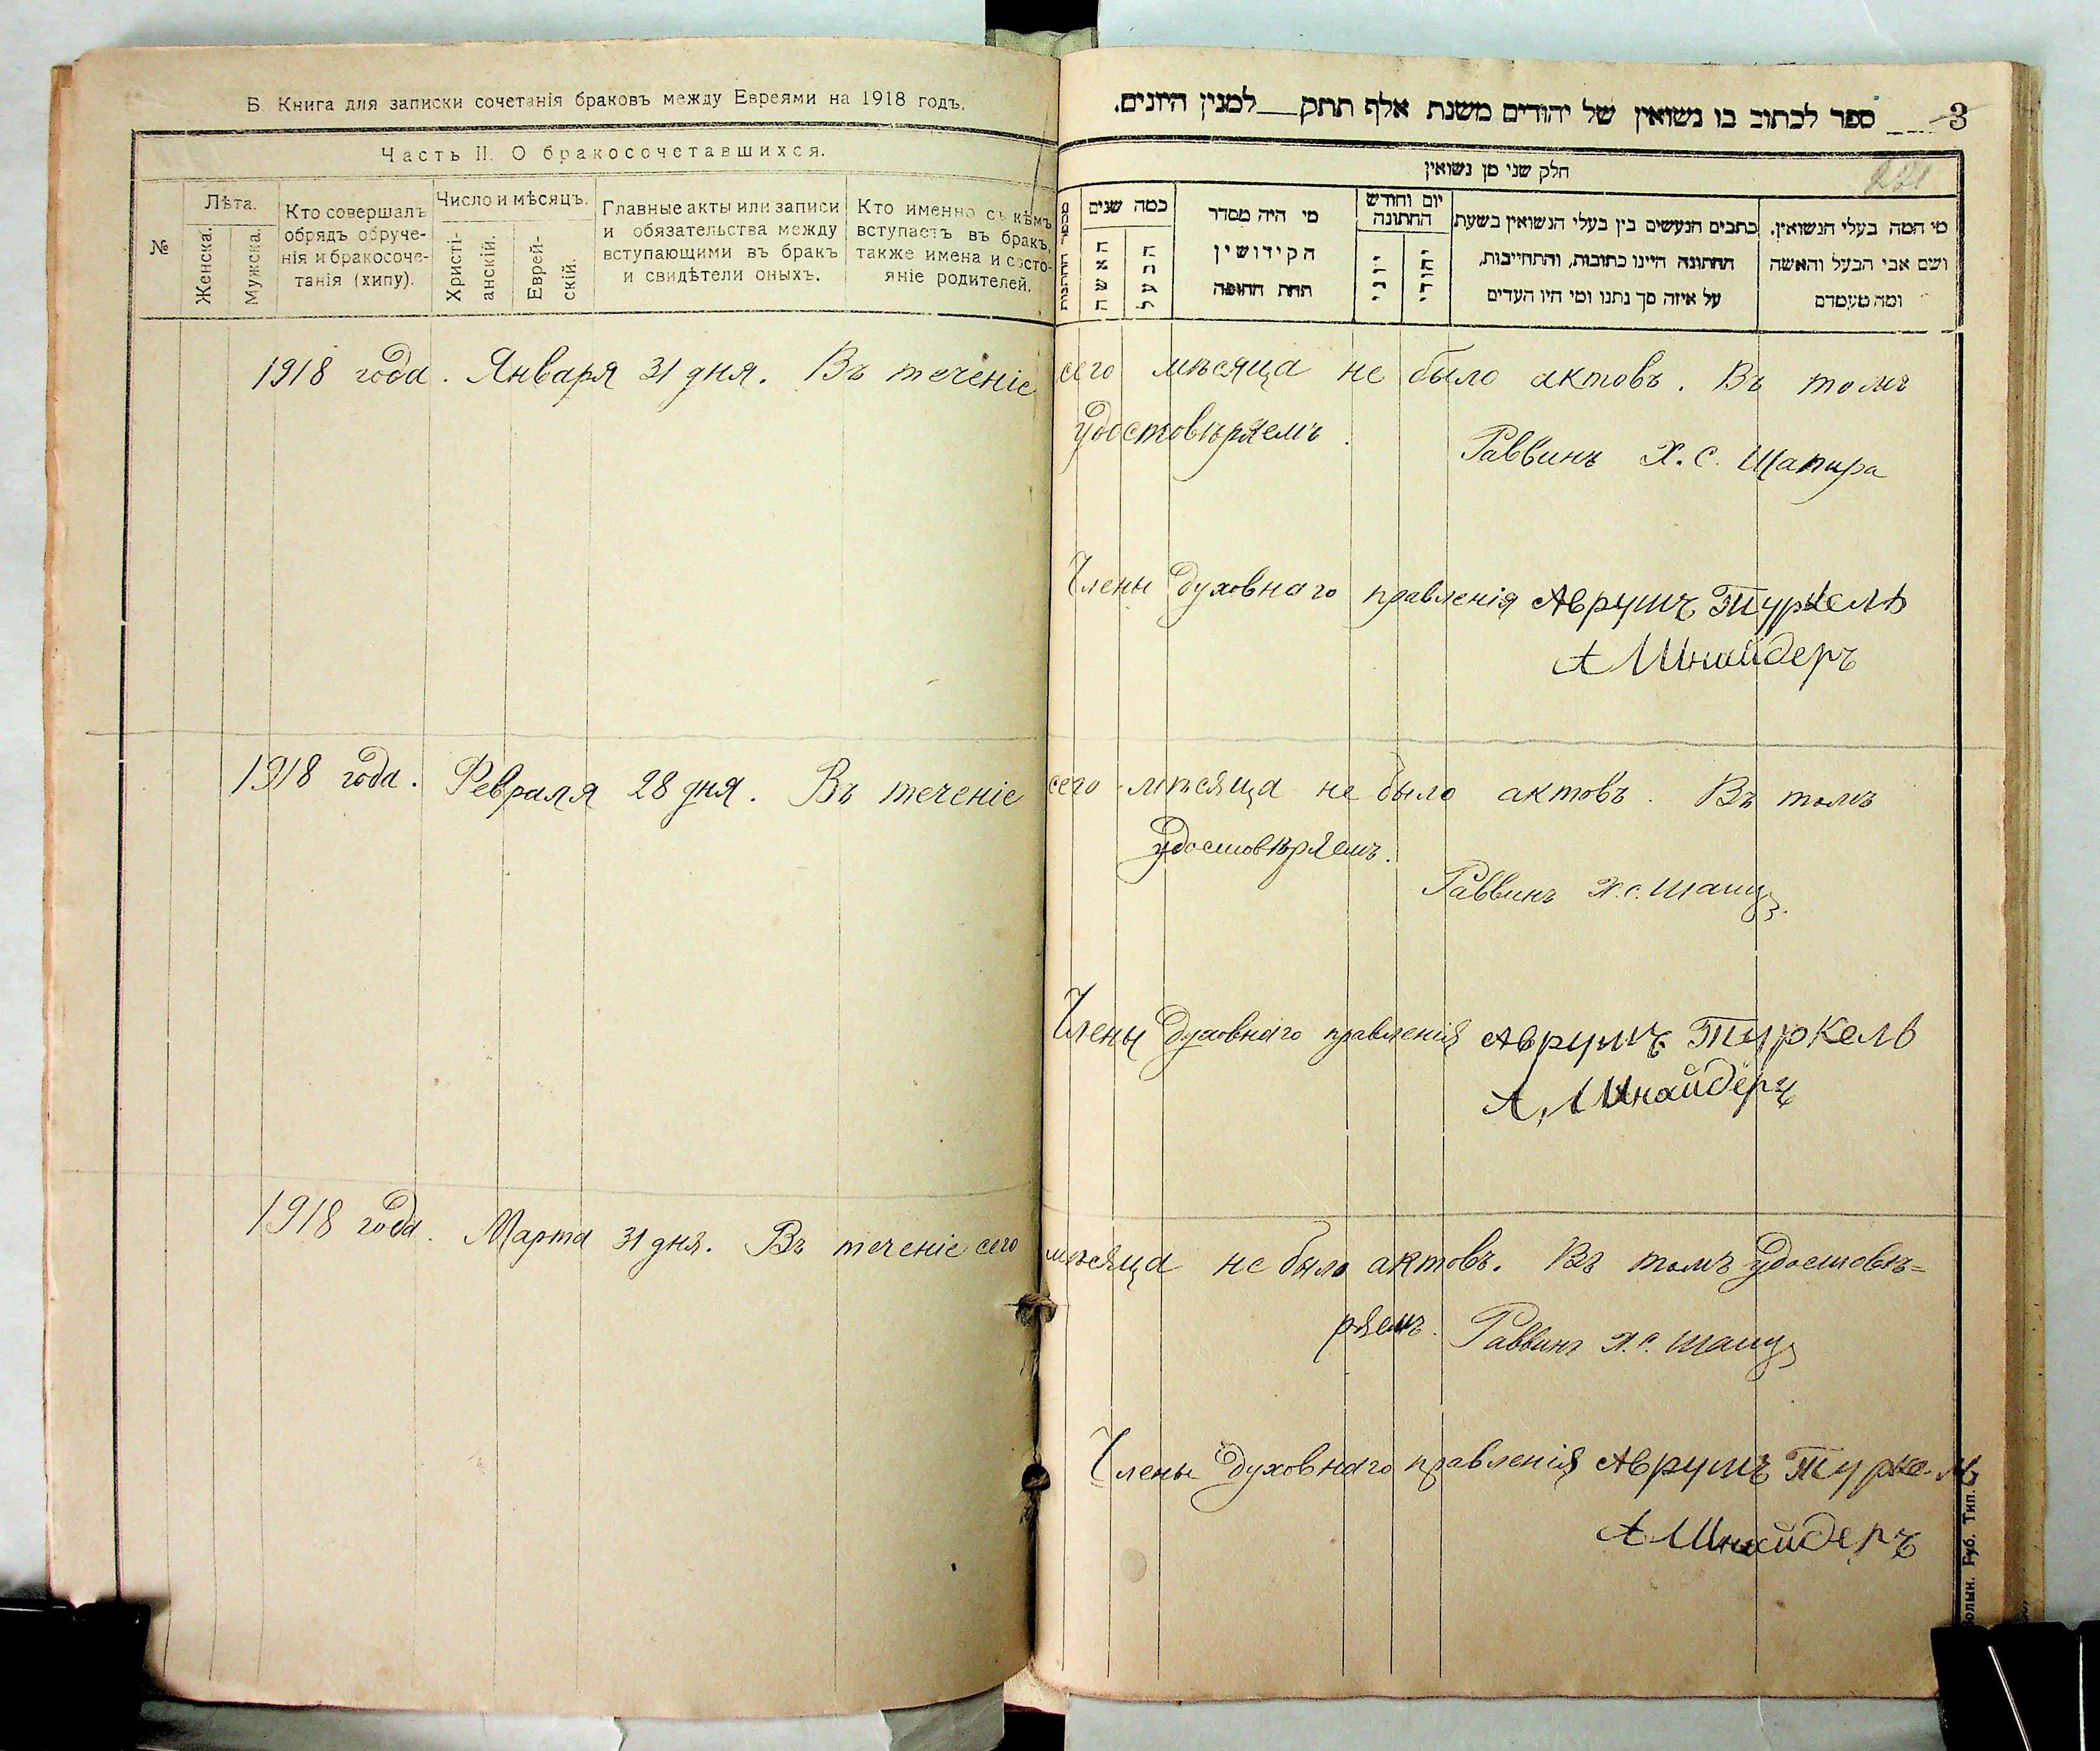 Б. Книга для записки сочетанія браковъ между Евреями на 1918 годъ.
Часть II. О бракосочетавшихся.
№
Лѣта.
Женска.
Мужска.
Кто совершалъ
обрядъ обруче-
нія и бракосоче-
танія (хипу).
Число и мѣсяцъ.
Христі-
анскій.
Еврей-
скій.
Главные акты или записи
и обязательства между
вступающими въ бракъ
и свидѣтели оныхъ.
Кто именно съ кѣмъ
вступаетъ въ бракъ,
также имена и состо-
яніе родителей.
3
ספר לכתוב בו נשואין של יהודים משנת אלף תתק למנין היונים.
חלק שני מן נשואין
מי המה בעלי הנשואין.
ושם אבי הבעל והאשה
ומה מעמדם
כתבים הנעשים בין בעלי הנשואין בשעת
החתונה היינו כתובות, והתחייבות,
על איזה סך נתנו ומי היו העדים
יום וחודש
החתונה
יהודי
יוני
מי היה מסדר
הקידושין
תחת החופה
כמה שנים
הבעל
האשה
מספר החתונות
1918 года. Января 31 дня. Въ теченіе сего мѣсяца не было актовъ. Въ томъ
удостовѣряемъ.
Раввинъ Х. С. Шапира
Члены духовнаго правленія Аврумъ Туркель
А Шнайдеръ
1918 года. Февраля 28 дня. Въ теченіе сего мѣсяца не было актовъ. Въ томъ
удостовѣряемъ.
Раввинъ Х. С.
Члены духовнаго правленія Аврумъ Туркель
А. Шнайдеръ
1918 года. Марта 31 дня. Въ теченіе сего мѣсяца не было актовъ. Въ томъ удостовѣ=
ряемъ. Раввинъ Х. С.
Члены духовнаго правленія Аврумъ Туркель
А Шнайдеръ
Губ. Тип.